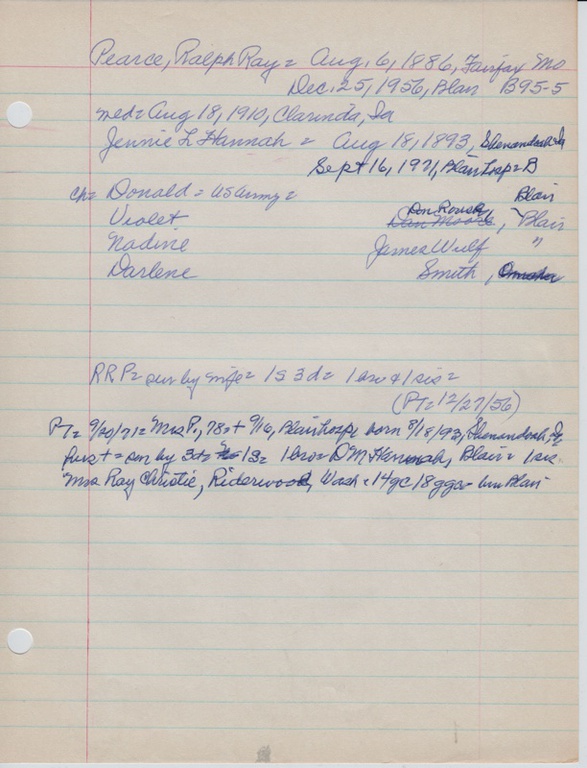 Pearce, Ralph Ray = Aug. 6, 1886, Fairfax Mo
Dec. 25, 1956, Blair B95-5
med = Aug 18, 1910, Clarinda, Ia
Jennie L Hannah = Aug 18, 1893, Shenandoah Ia
Sept 16, 1971, Blair hosp = B
ch = Donald = US Army = Blair
Violet Don Rousey, Blair
Nadine James Wulf "
Darlene Smith, Omaha
RRP = sur by wife = 1s 3d = 1 bro & 1 sis =
(PT = 12/27/56)
PT = 9/20/71 = Mrs P, 78 = + 9/16, Blair hosp born 8/18/93, Shenandoah, Ia
sur by 3d = 1s = 1 bro = D M Hannah, Blair = 1 sis
Mrs Ray Christie, Riderwood, Wash = 14gc 18ggc = Blair